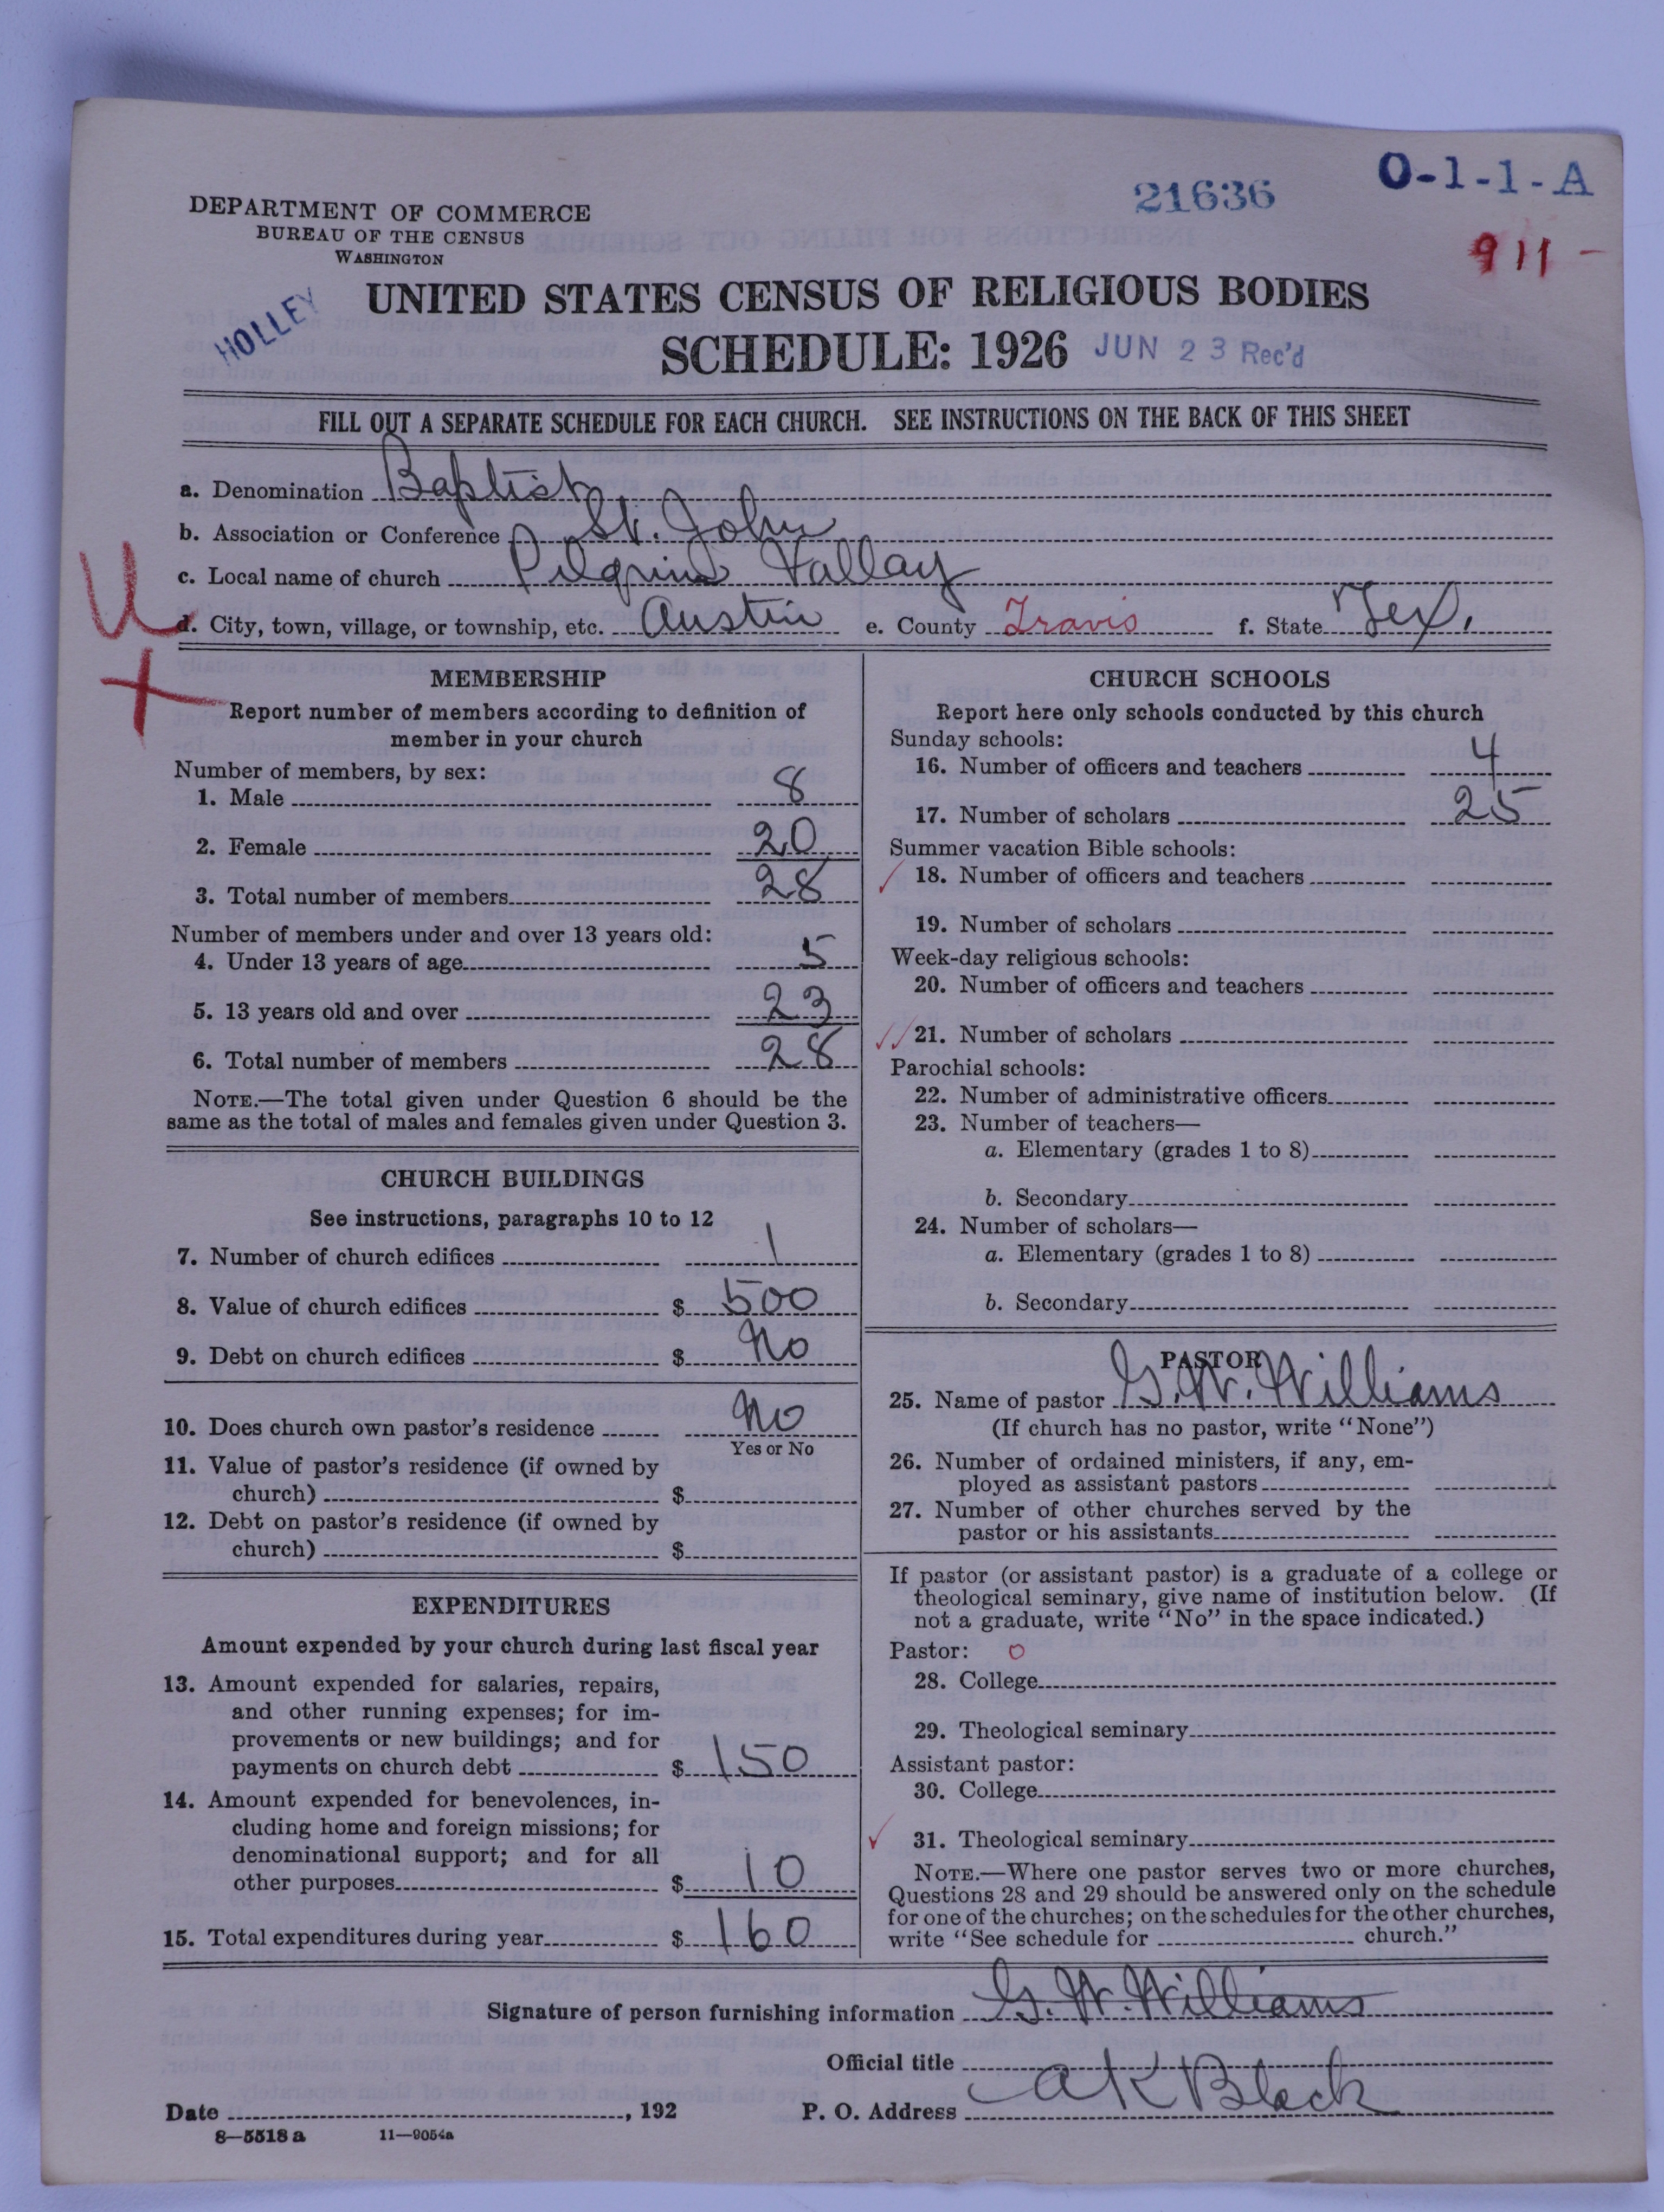 O-1-1-A
21636
911-
DEPARTMENT OF COMMERCE
BUREAU OF THE CENSUS
WASHINGTON
HOLLEY
UNITED STATES CENSUS OF RELIGIOUS BODIES
SCHEDULE: 1926 JUN 23 Rec'd
FILL OUT A SEPARATE SCHEDULE FOR EACH CHURCH. SEE INSTRUCTIONS ON THE BACK OF THIS SHEET
a. Denomination Baptist
b. Association or Conference St. John
c. Local name of church Pilgrim Valley
d. City, town, village, or township, etc. Austin e. County Travis f. State Tex.
MEMBERSHIP
Report number of members according to definition of
member in your church
Number of members, by sex:
1. Male 8
2. Female 20
3. Total number of members 28
Number of members under and over 13 years old:
4. Under 13 years of age 5
5. 13 years old and over 23
6. Total number of members 28
NOTE.—The total given under Question 6 should be the
same as the total of males and females given under Question 3.
CHURCH BUILDINGS
See instructions, paragraphs 10 to 12
7. Number of church edifices 1
8. Value of church edifices $ 500
9. Debt on church edifices $ No
10. Does church own pastor's residence No
Yes or No
11. Value of pastor's residence (if owned by
church) $
12. Debt on pastor's residence (if owned by
church) $
EXPENDITURES
Amount expended by your church during last fiscal year
13. Amount expended for salaries, repairs,
and other running expenses; for im-
provements or new buildings; and for
payments on church debt $ 150
14. Amount expended for benevolences, in-
cluding home and foreign missions; for
denominational support; and for all
other purposes $ 10
15. Total expenditures during year $ 160
CHURCH SCHOOLS
Report here only schools conducted by this church
Sunday schools:
16. Number of officers and teachers 4
17. Number of scholars 25
Summer vacation Bible schools:
18. Number of officers and teachers
19. Number of scholars
Week-day religious schools:
20. Number of officers and teachers
21. Number of scholars
Parochial schools:
22. Number of administrative officers
23. Number of teachers—
a. Elementary (grades 1 to 8)
b. Secondary
24. Number of scholars—
a. Elementary (grades 1 to 8)
b. Secondary
PASTOR
25. Name of pastor G. W. Williams
(If church has no pastor, write "None")
26. Number of ordained ministers, if any, em-
ployed as assistant pastors
27. Number of other churches served by the
pastor or his assistants
If pastor (or assistant pastor) is a graduate of a college or
theological seminary, give name of institution below. (If
not a graduate, write "No" in the space indicated.)
Pastor: 0
28. College
29. Theological seminary
Assistant pastor:
30. College
31. Theological seminary
NOTE.—Where one pastor serves two or more churches,
Questions 28 and 29 should be answered only on the schedule
for one of the churches; on the schedules for the other churches,
write "See schedule for church."
Signature of person furnishing information G. W. Williams
Official title
P. O. Address a K Black
Date , 192
8—5518 a 11—9054a